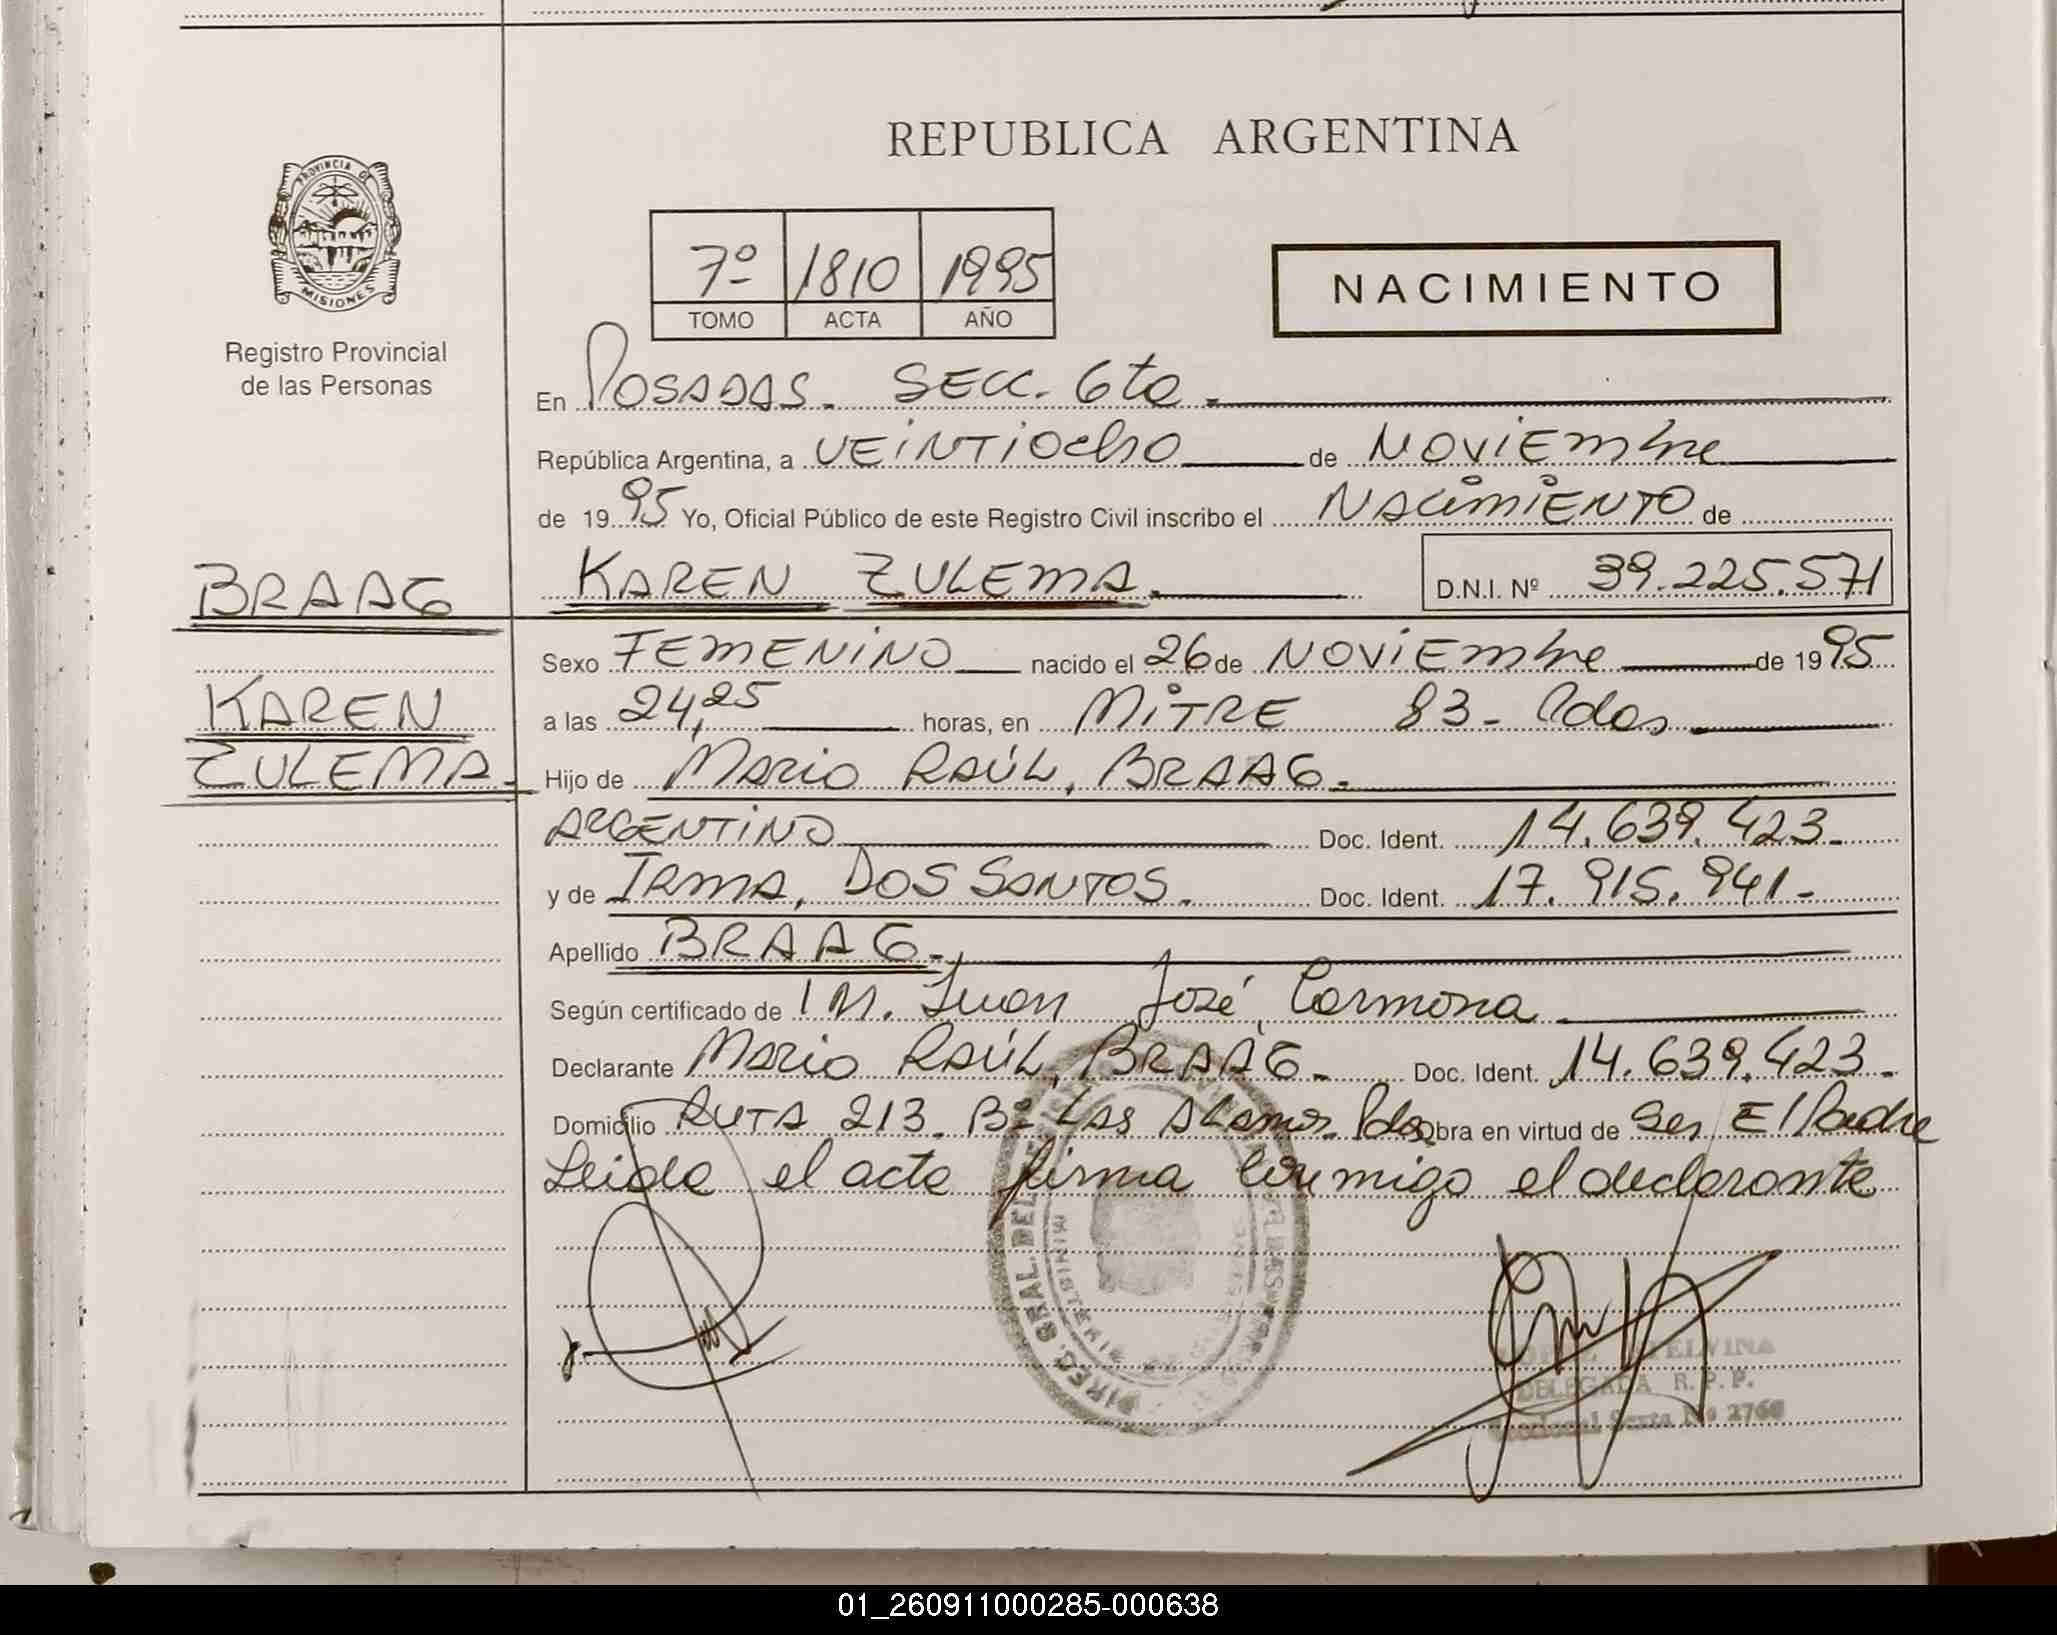 REPUBLICA ARGENTINA
PROVINCIA DE
MISIONES
Registro Provincial
de las Personas
7º 1810 1995
TOMO ACTA AÑO
NACIMIENTO
En POSADAS. SECC. 6ta.
República Argentina, a VEINTIOcho de NOVIEmbre
de 1995 Yo, Oficial Público de este Registro Civil inscribo el NACIMIENTO de
BRAAG
KAREN ZULEMA. D.N.I. Nº 39.225.571
Sexo FEMENINO nacido el 26 de NOVIEmbre de 1995
KAREN
a las 24,25 horas, en MITRE 83- Pdas
ZULEMA.
Hijo de MARIO RAÚL, BRAAG.
ARGENTINO Doc. Ident. 14.639.423-
y de IRMA, DOS SANTOS. Doc. Ident. 17.915.941-
Apellido BRAAG-
Según certificado de Juan José, Carmona
Declarante MARIO RAÚL, BRAAG- Doc. Ident. 14.639.423-
Domicilio RUTA 213. Bº LAS ALAMOS. Pdas Obra en virtud de Ser El Padre
Leida el acta firma conmigo el declarante
DIREC. GRAL. DEL
MINISTERIO
DELEGADA R. P. P.
Seccional Sexta Nº 2760
01_260911000285-000638